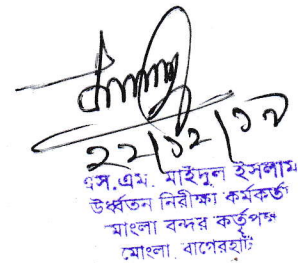 ২২/১২/১৯
এস.এম. মাইদুল ইসলাম
উর্ধ্বতন নিরীক্ষা কর্মকর্তা
মোংলা বন্দর কর্তৃপক্ষ
মোংলা, বাগেরহাট